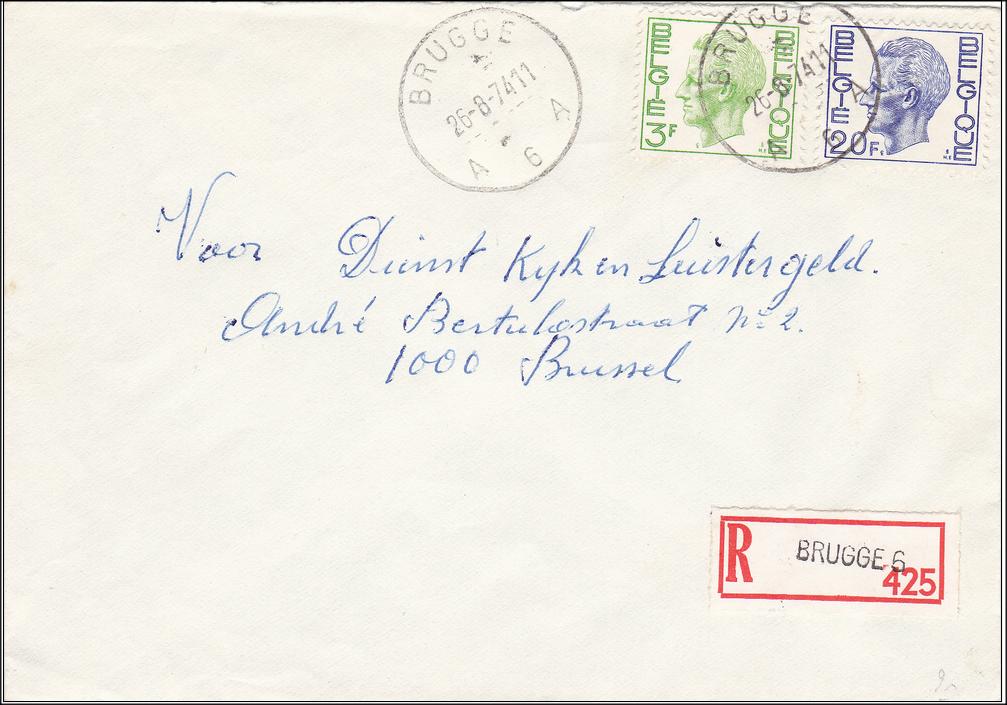 BRUGGE
26-8-7411
A 6 A
BELGIE BELGIQUE
3F
BRUGGE
26-8-7411
A 6 A
BELGIE BELGIQUE
20F
Voor Dienst Kyk en Luistergeld.
André Bertulostraat No 2.
1000 Brussel
R BRUGGE 6
425